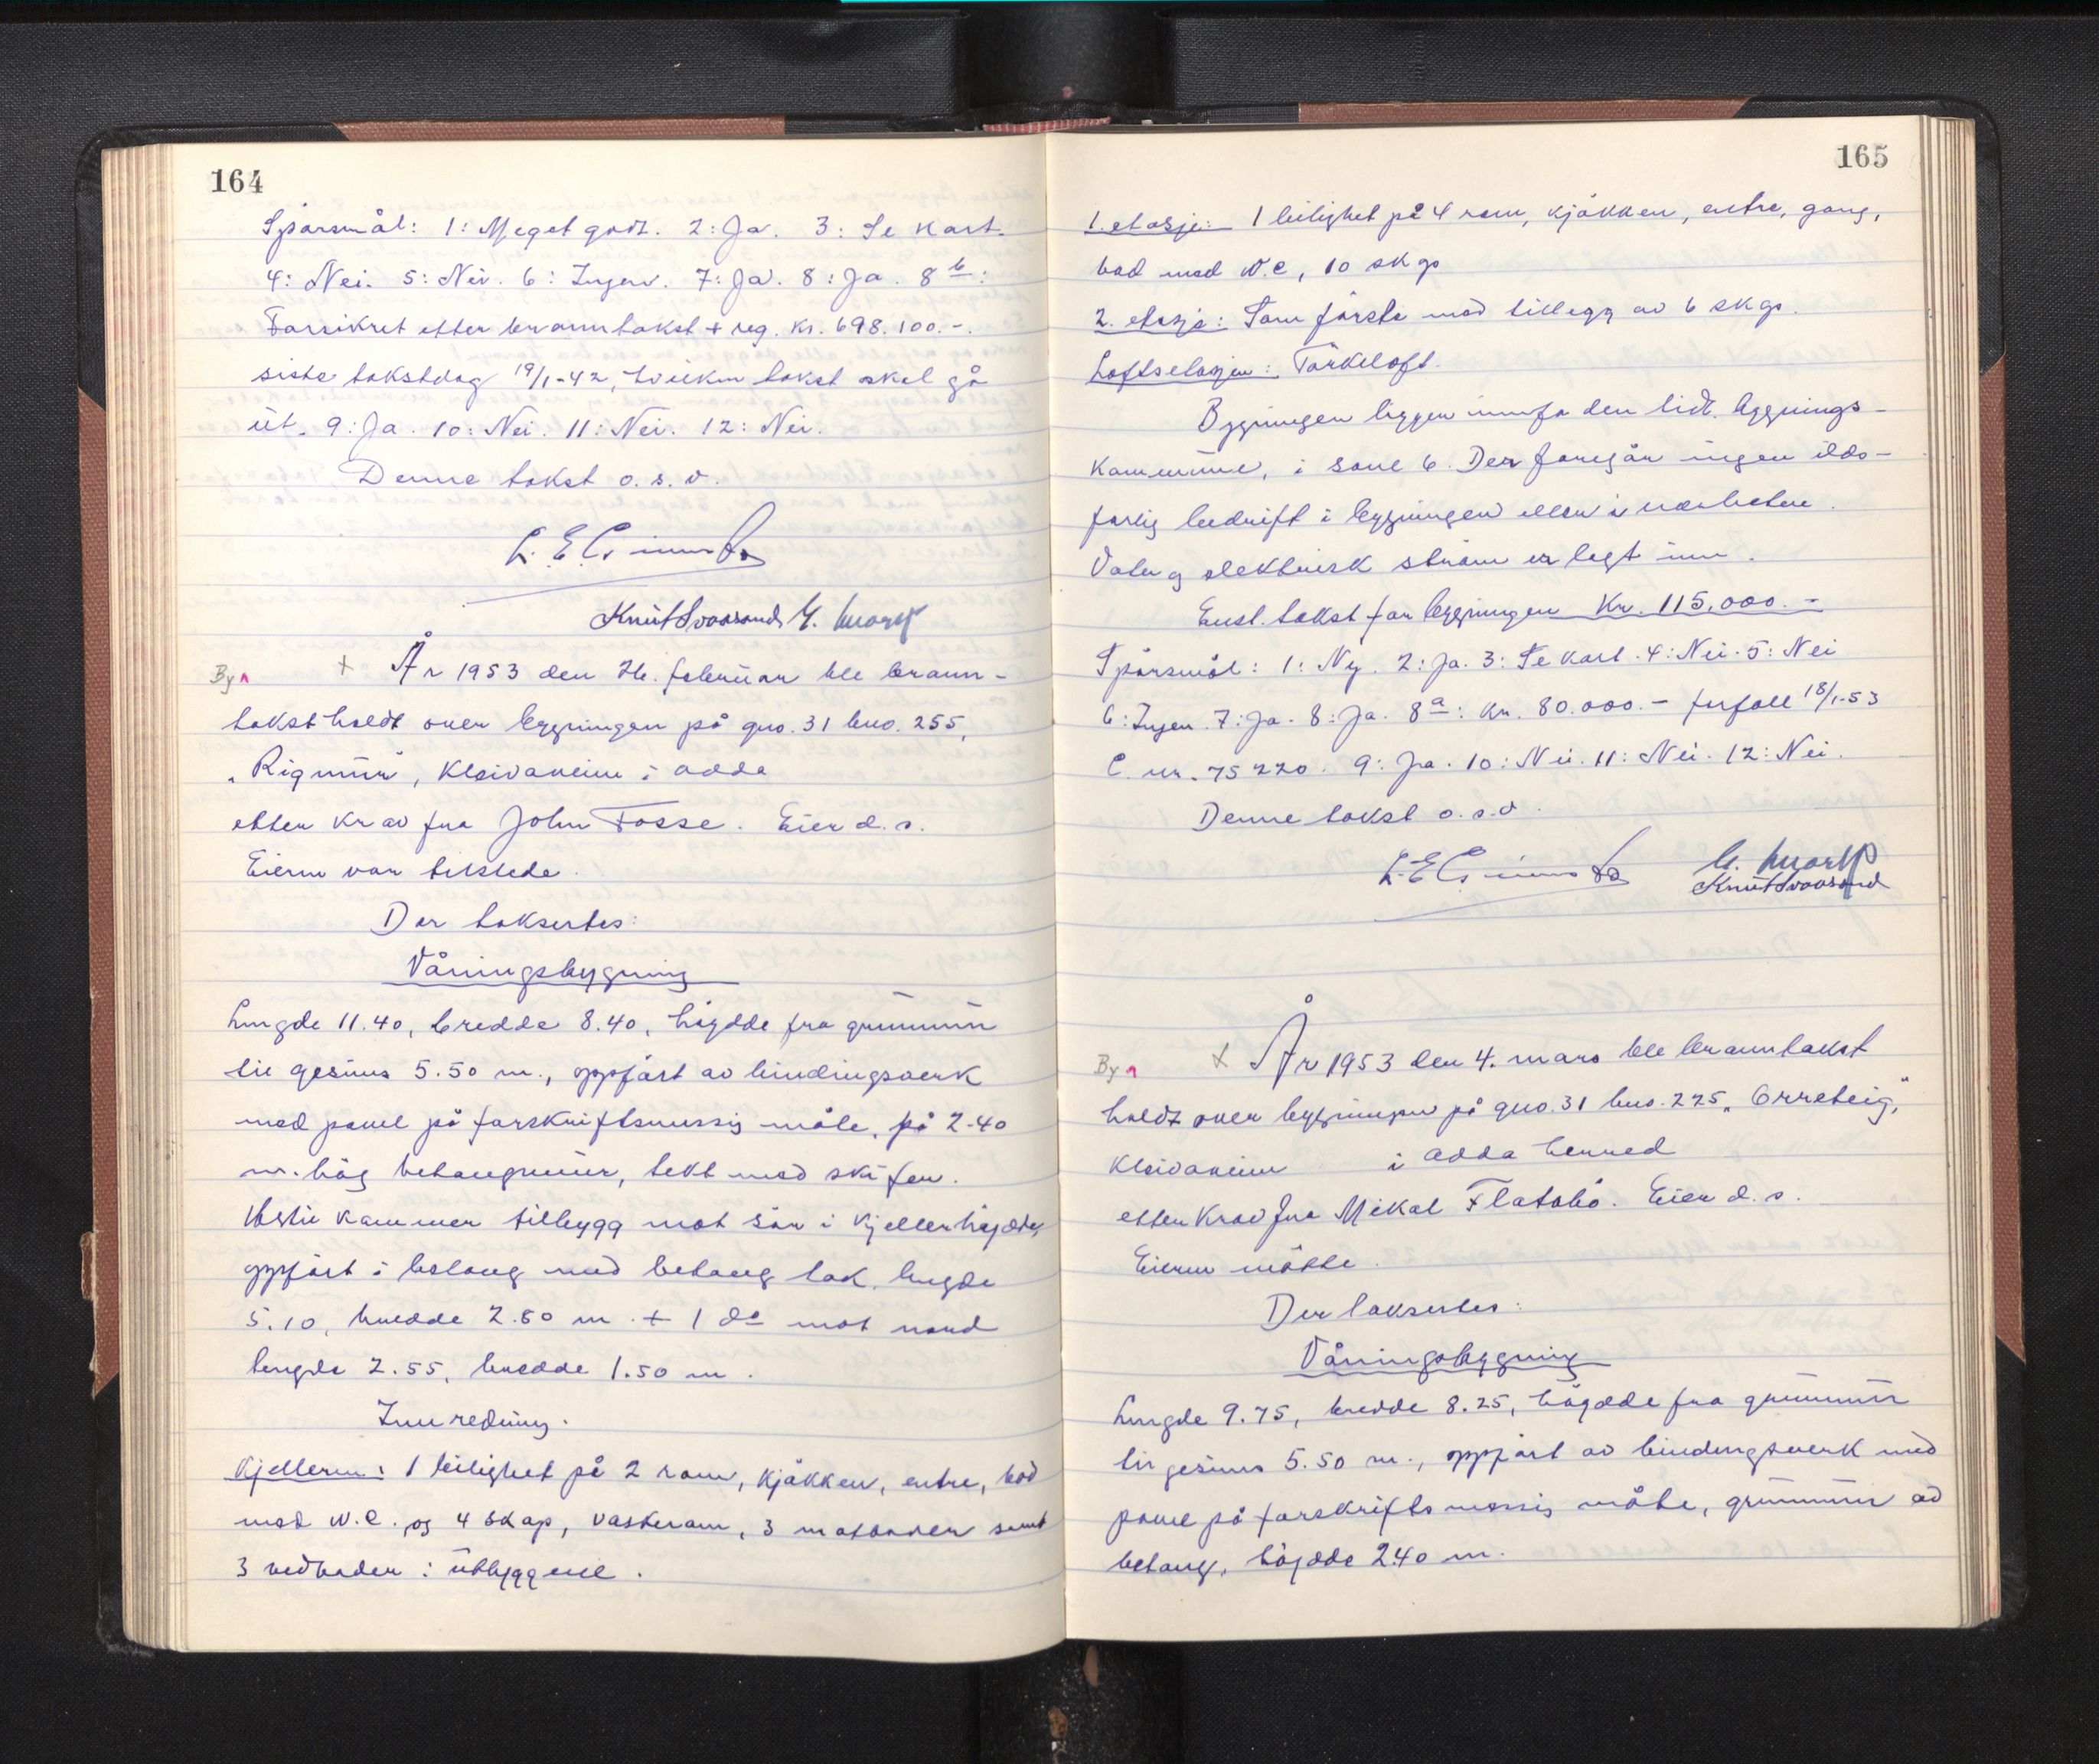 164
Spörsmål: 1: Meget godt. 2: Ja. 3: Se Kart.
4: Nei. 5: Nei. 6: Ingen. 7: Ja. 8: Ja. 8 b:
Forsikret etter branntakst + reg. Kr. 698.100.-.
siste takstdag 19/1-42, hvilken takst skal gå
ut. 9: Ja. 10: Nei. 11: Nei. 12: Nei.
Denne takst o.s.v.
By
+ År 1953 den 26. februar ble brann-
takst holdt over bygningen på gno. 31 bno. 255,
"Rigmur", Kleivaneim i Odda
etter krav fra John Fosse. Eier d.s.
Eieren var tilstede.
Der taksertes:
Våningsbygning
Lengde 11.40, bredde 8.40, höydde fra grunnmur
til gesims 5.50 m., oppfört av bindingsverk
med panel på forskriftsmessig måte, på 2.40
m. hög betongmur, tekt med skifer.
kommer tilbygg mot sör i kjellerhöyde,
oppfört i betong med betong tak. lengde
5.10, bredde 2.50 m. + 1 do mot nord
lengde 2.55, bredde 1.50 m.
Innredning.
Kjelleren: 1 leilighet på 2 rom, kjökken, entre, bad
med W.C. og 4 skap, vaskerom, 3 matboder samt
3 vedboder i utbyggene.
165
1. etasje: 1 leilighet på 4 rom, kjökken, entre, gang,
bad med W.C, 10 skap
2. etasje: Som förste med tillegg av 6 skap.
Loftsetasjen: Törkeloft.
Bygningen ligger innfor den tidl. bygnings-
kommune, i sone 6. Der foregår ingen ilds-
farlig bedrift i bygningen eller i nærheten.
Vatn og elektrisk ström er lagt inn.
Ensl. takst for bygningen Kr. 115.000.-
Spörsmål: 1: Ny. 2: Ja. 3: Se kart. 4: Nei. 5: Nei
6: Ingen. 7: Ja. 8: Ja. 8a: Kr. 80.000.- forfall 18/1-53
C. nr. 75220. 9: Ja. 10: Nei. 11: Nei. 12: Nei.
Denne takst o.s.v.
By
+ År 1953 den 4. mars ble branntakst
holdt over bygningen på gno. 31 bno. 225 "Orreteig",
Kleivaneim i Odda herred
etter krav fra Mikal Flatabö. Eier d.s.
Eieren mötte.
Der taksertes:
Våningsbygning
Lengde 9.75, bredde 8.25, höydde fra grunnmur
til gesims 5.50 m., oppfört av bindingsverk med
panel på forskriftsmessig måte, grunnmur av
betong, höydde 2.40 m.